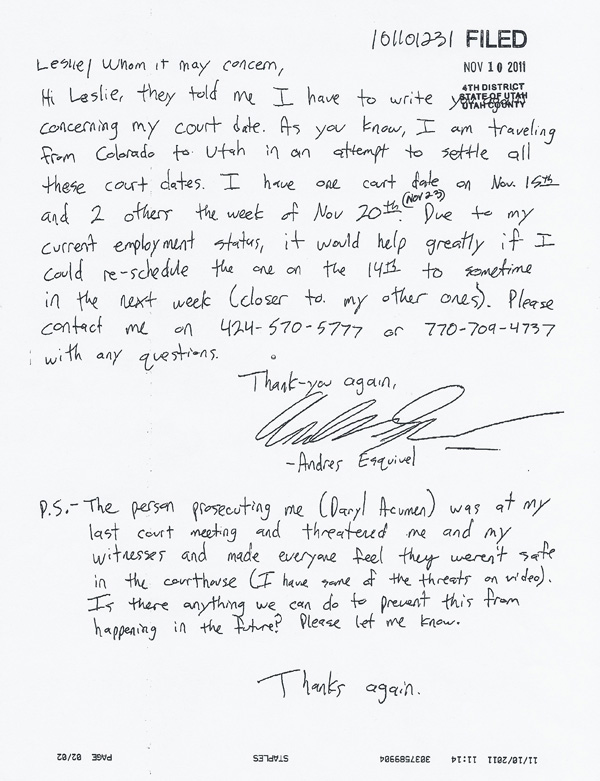 101101231 FILED
NOV 10 2011
4TH DISTRICT
STATE OF UTAH
UTAH COUNTY
Leslie/ Whom it may concern,
Hi Leslie, they told me I have to write
concerning my court date. As you know, I am traveling
from Colorado to Utah in an attempt to settle all
these court dates. I have one court date on Nov. 15th
and 2 others the week of Nov 20th (Nov 23). Due to my
current employment status, it would help greatly if I
could re-schedule the one on the 14th to sometime
in the next week (closer to my other ones). Please
contact me on 424-570-5777 or 770-709-4737
with any questions.
Thank-you again,
-Andres Esquivel
P.S.- The person prosecuting me (Daryl Acumen) was at my
last court meeting and threatened me and my
witnesses and made everyone feel they weren't safe
in the courthouse (I have some of the threats on video).
Is there anything we can do to prevent this from
happening in the future? Please let me know.
Thanks again.
11/10/2011 11:14 3037589904 STAPLES PAGE 02/02